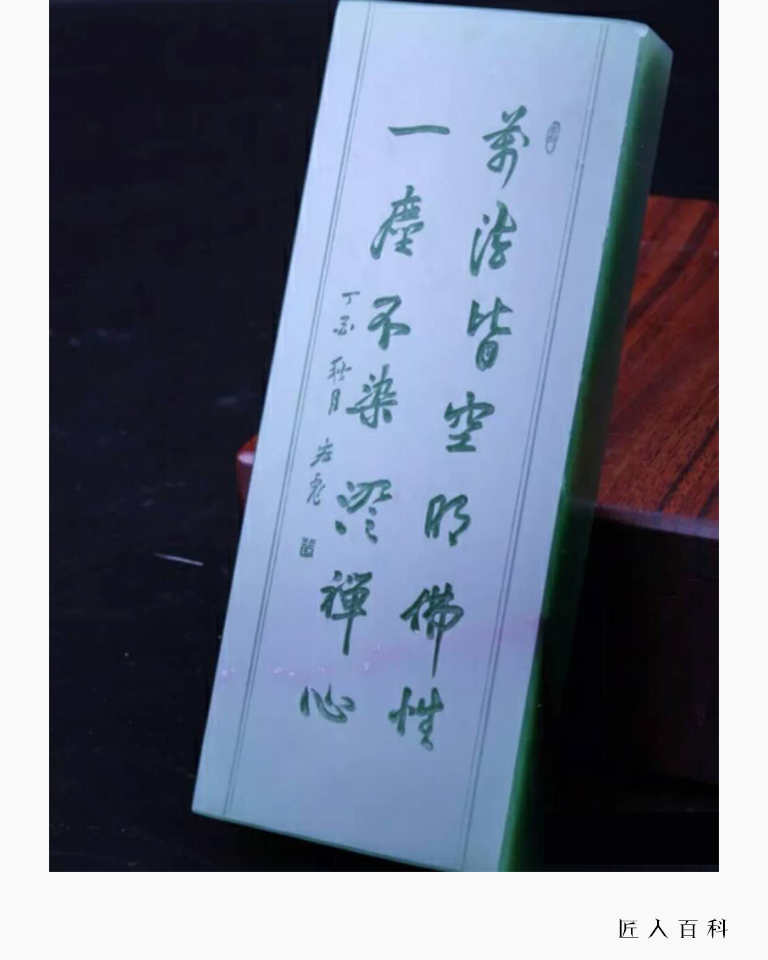 萬法皆空明佛性
一塵不染澄禪心
丁酉秋月
匠人百科